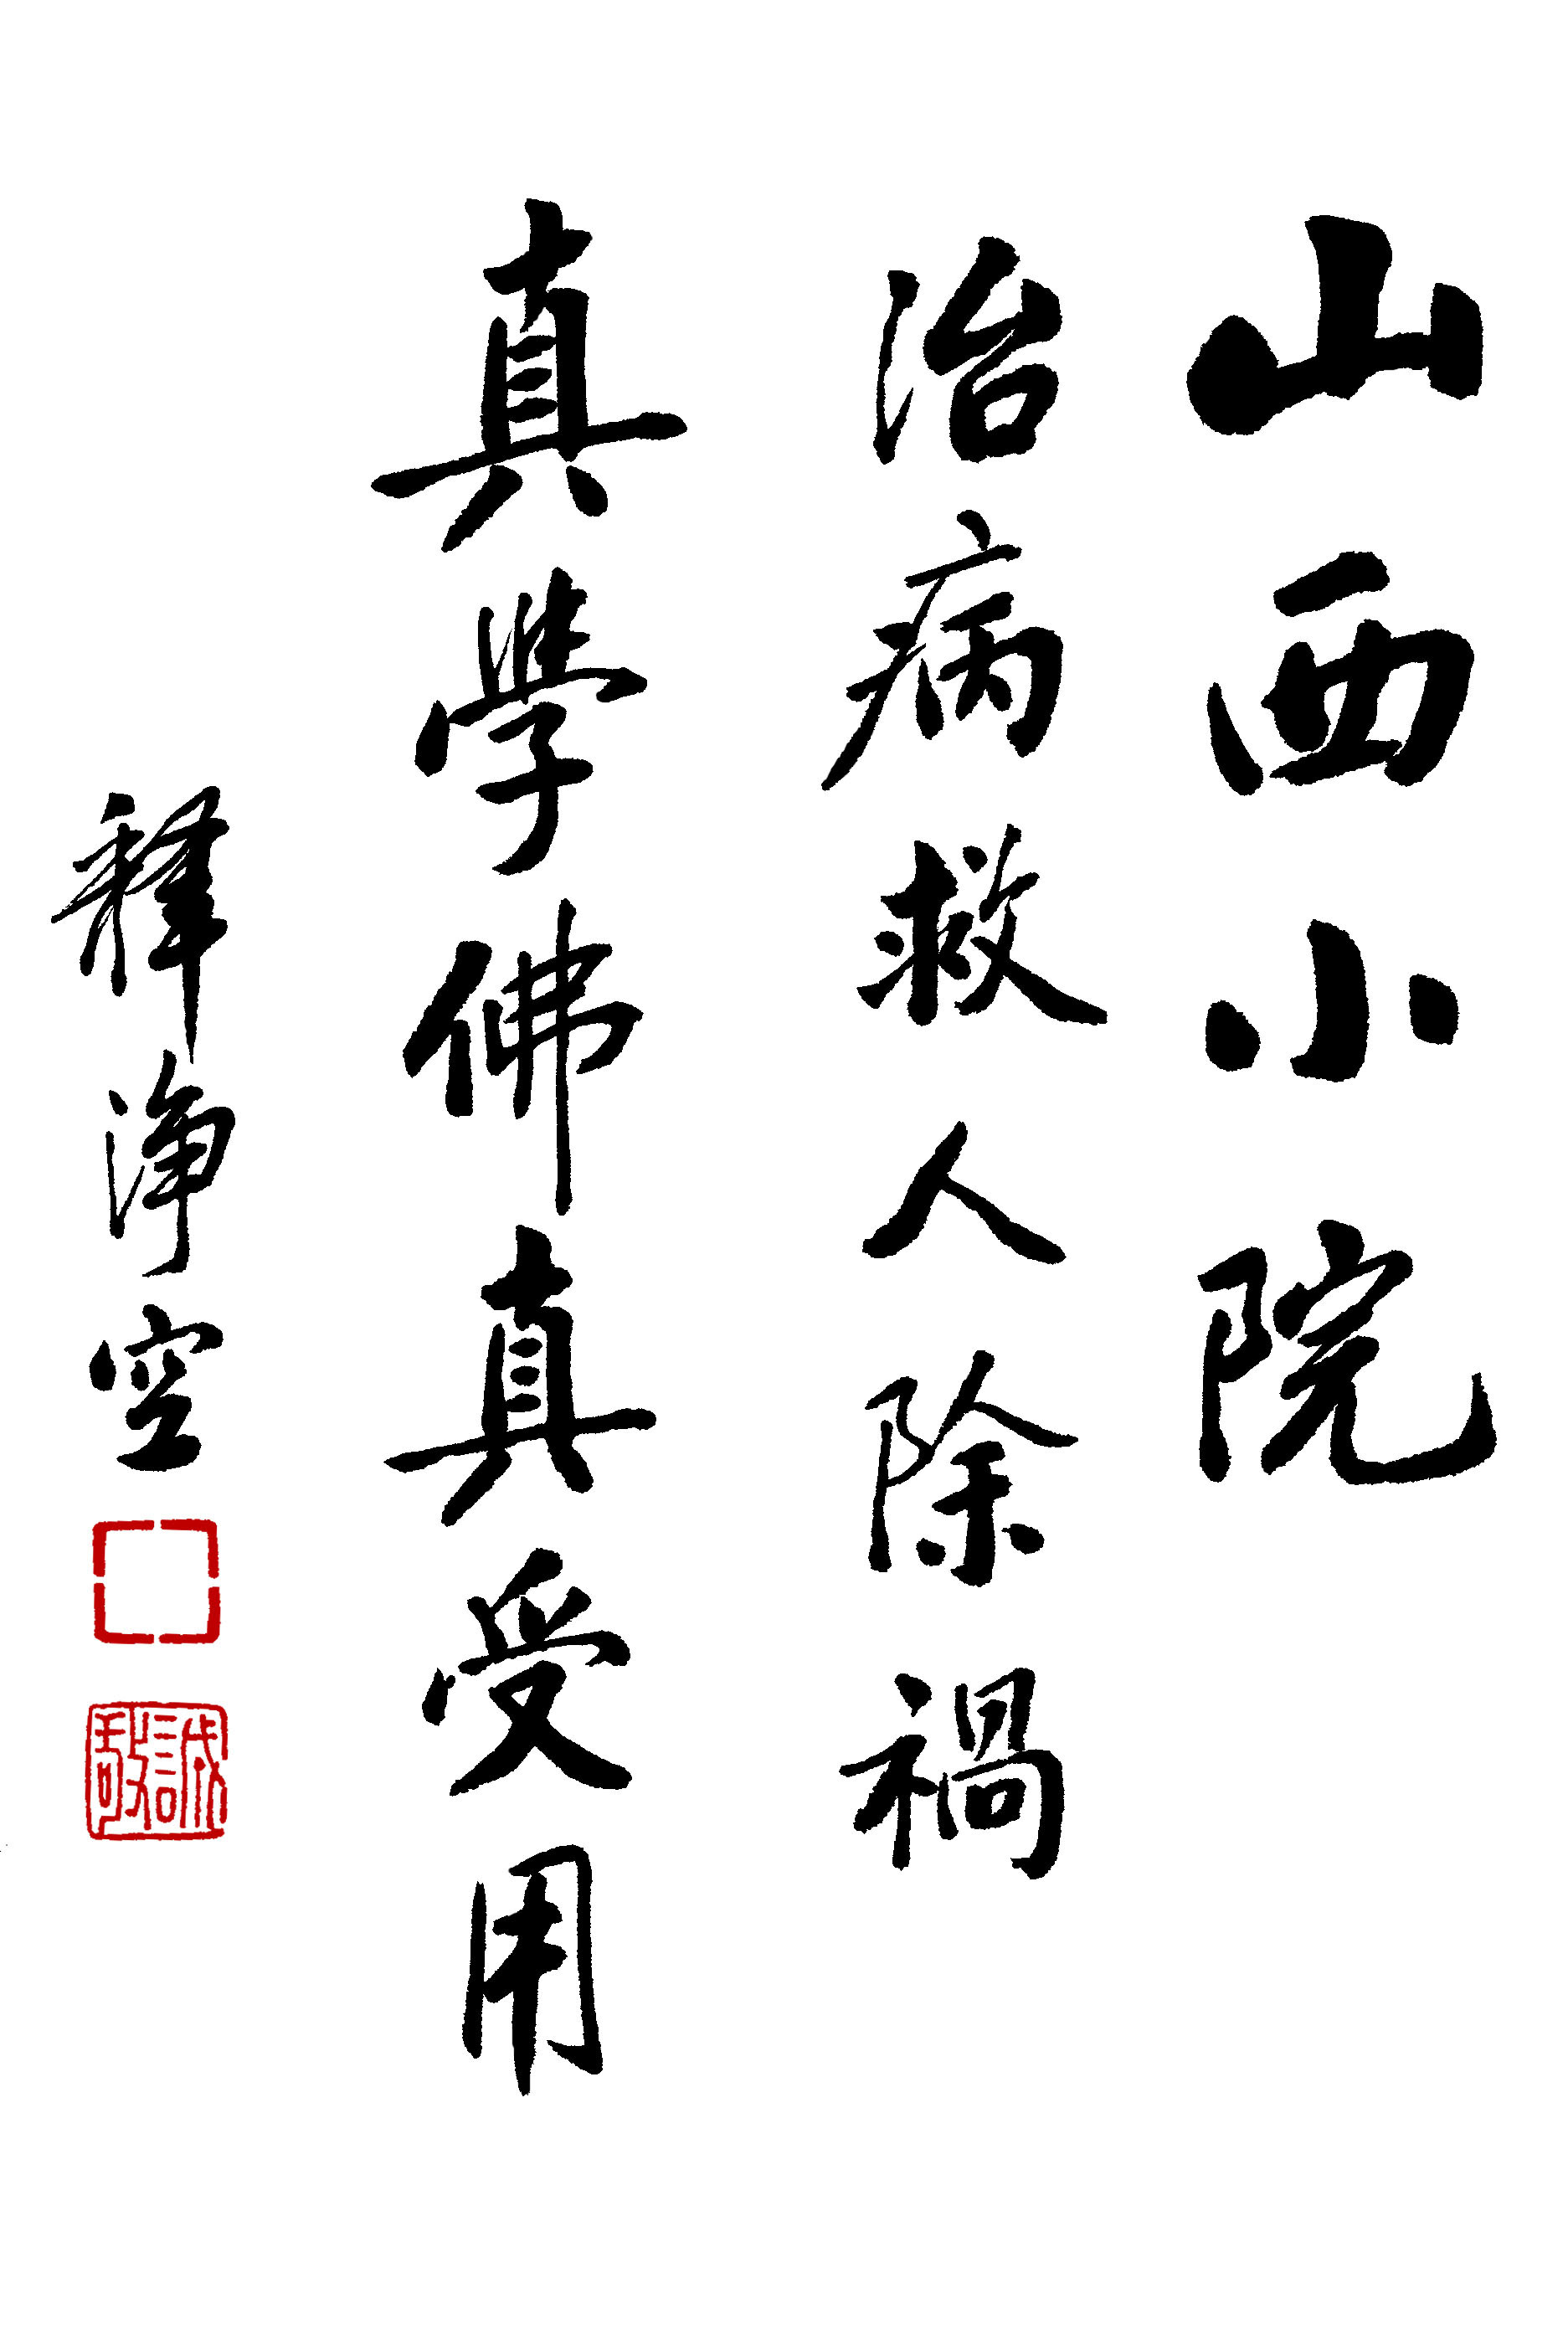 山西小院
治病救人除禍
真學佛真受用
釋淨空
誠敬